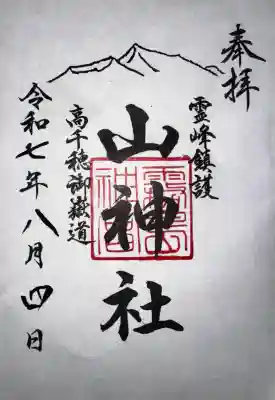 奉拝
霊峰鎮護
山神社
高千穂御嶽道
令和七年八月四日